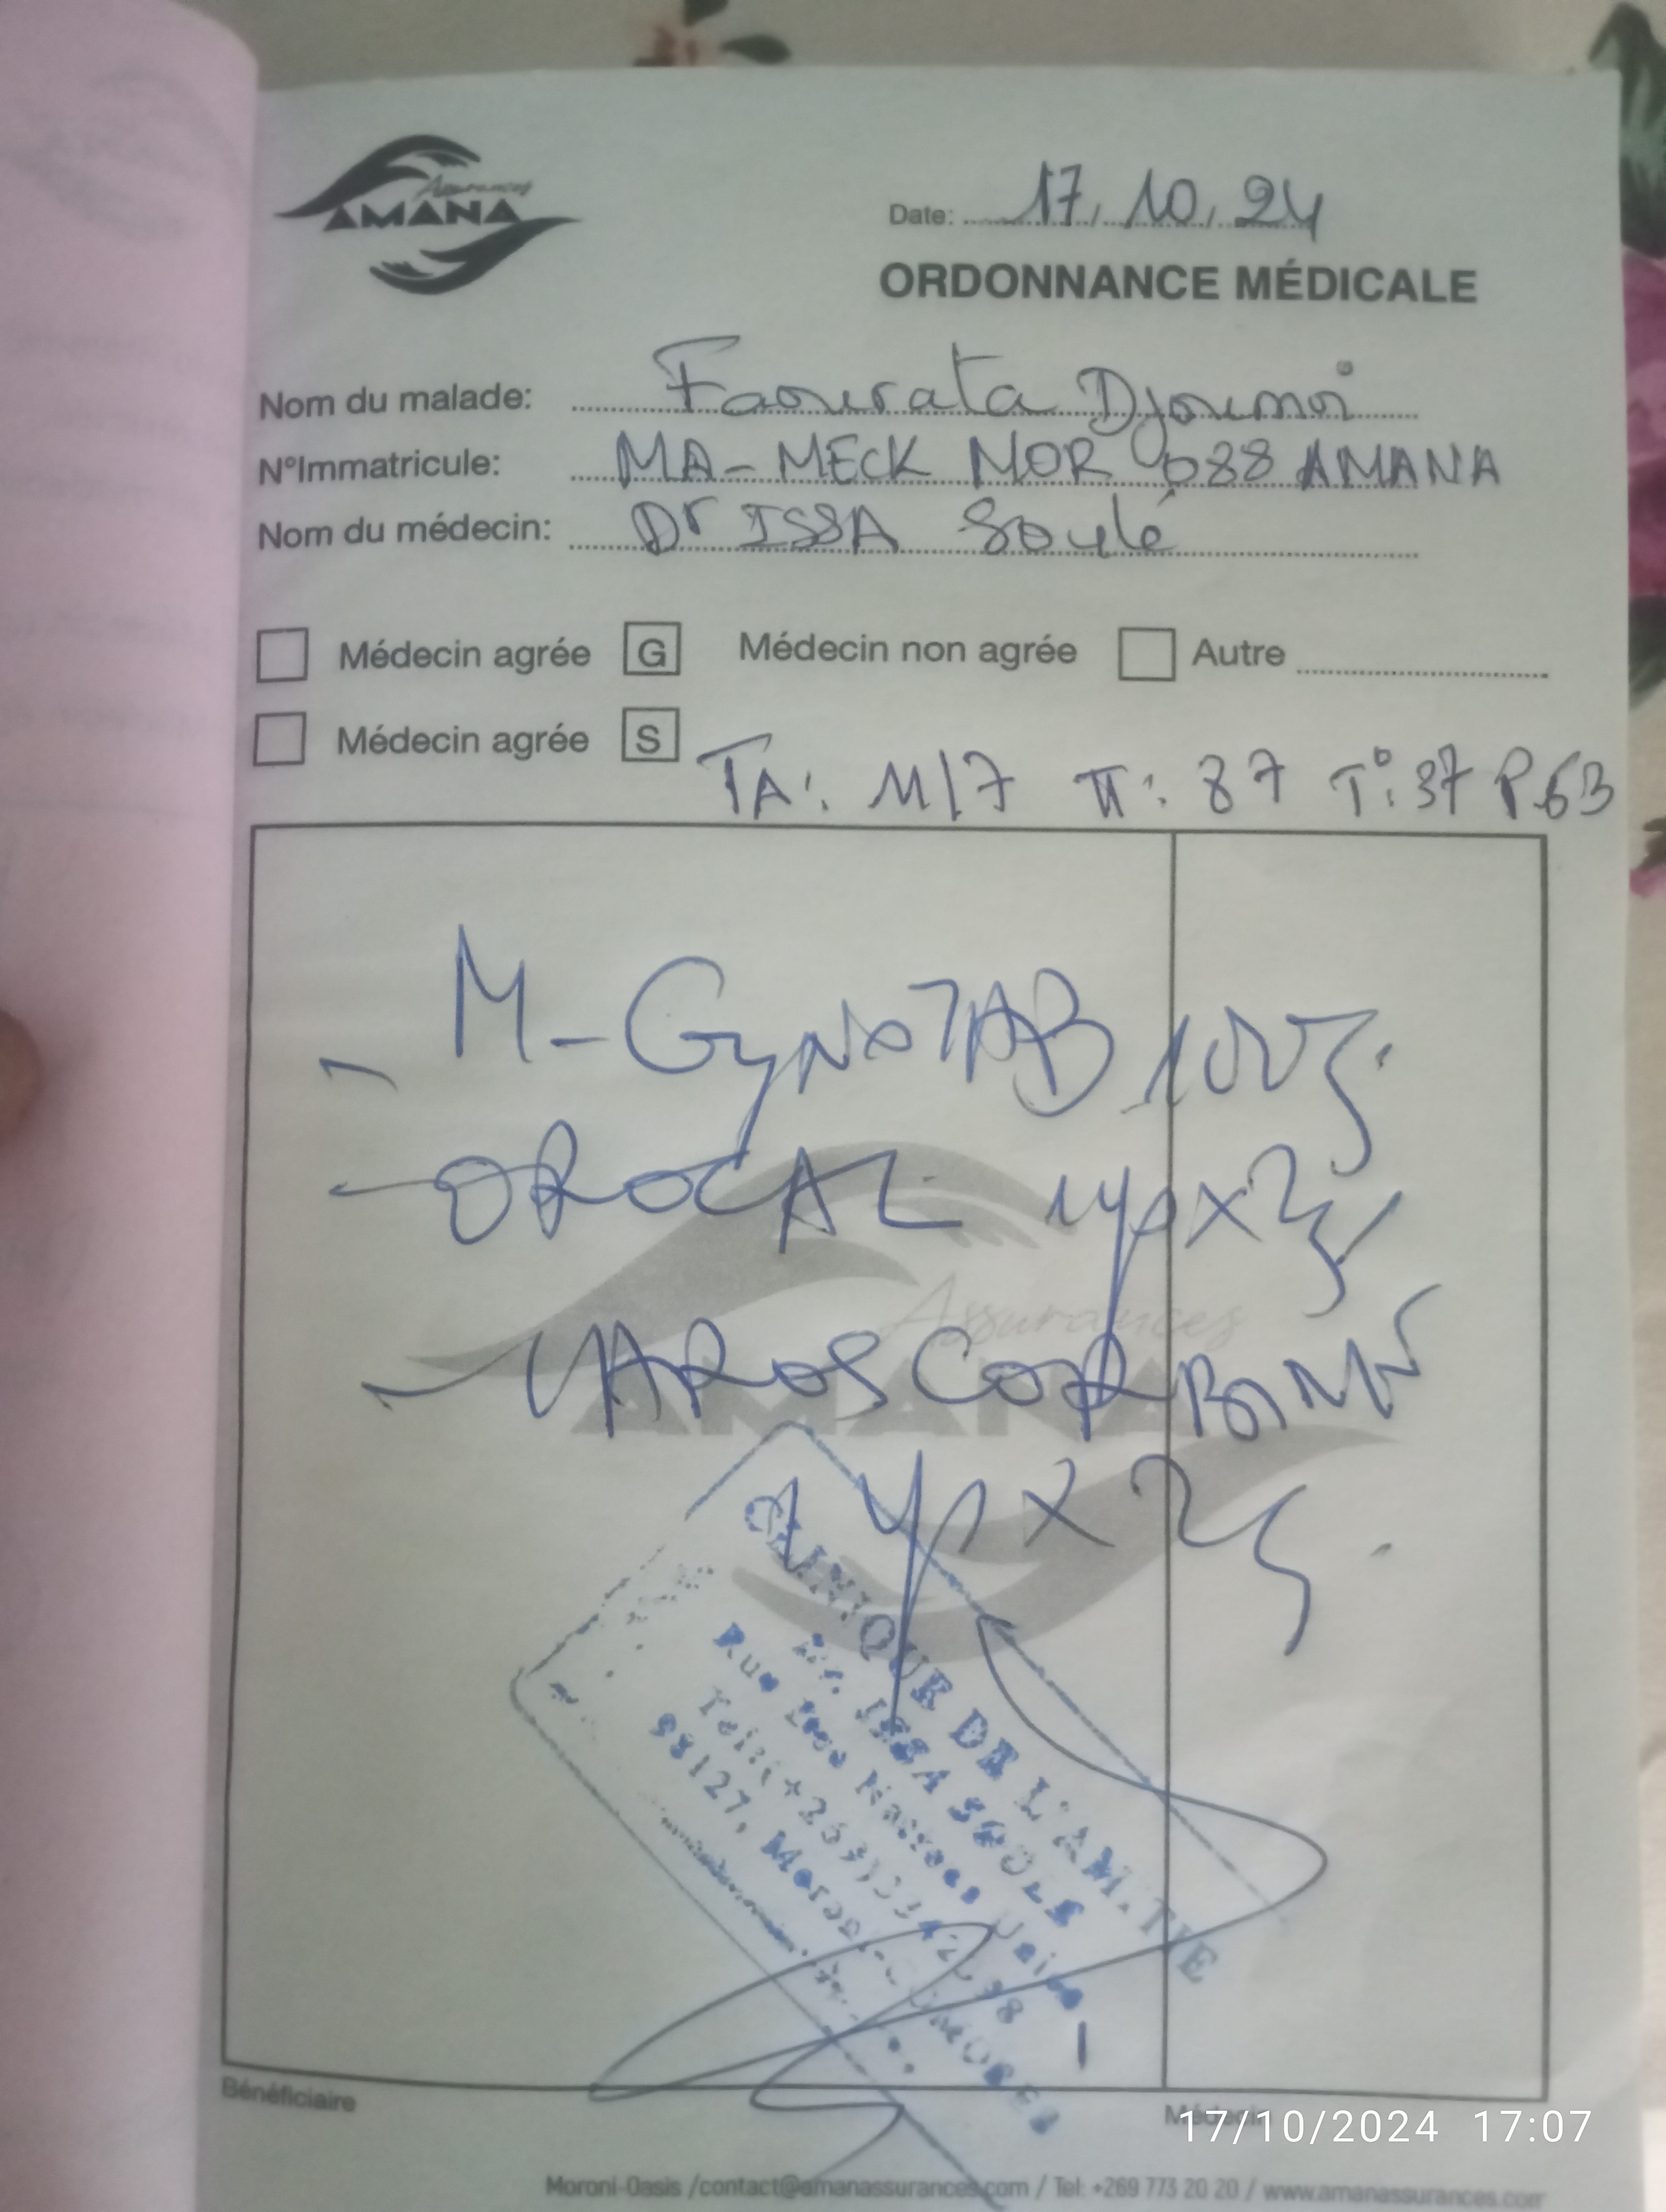 Assurances
AMANA
Date: 17, 10, 24
ORDONNANCE MÉDICALE
Nom du malade: Faourata Djoumoi
N°Immatricule: MA-MECK MOR 688 AMANA
Nom du médecin: Dr ISSA Soulé
Médecin agrée G Médecin non agrée Autre
Médecin agrée S
TA: 11/7 π: 87 T°: 37 P. 63
- M-GyNoTAB 10 J.
- OROCAL 1 x 2
- VAROSCORBINE
1 x 2
Assurances
AMANA
CLINIQUE DE L'AMITIE
Dr. ISSA SOULE
Rue
98127, Moroni COMORES
Bénéficiaire
Médecin
17/10/2024 17:07
Moroni-Oasis /contact@amanassurances.com / Tel: +269 773 20 20 / www.amanassurances.com